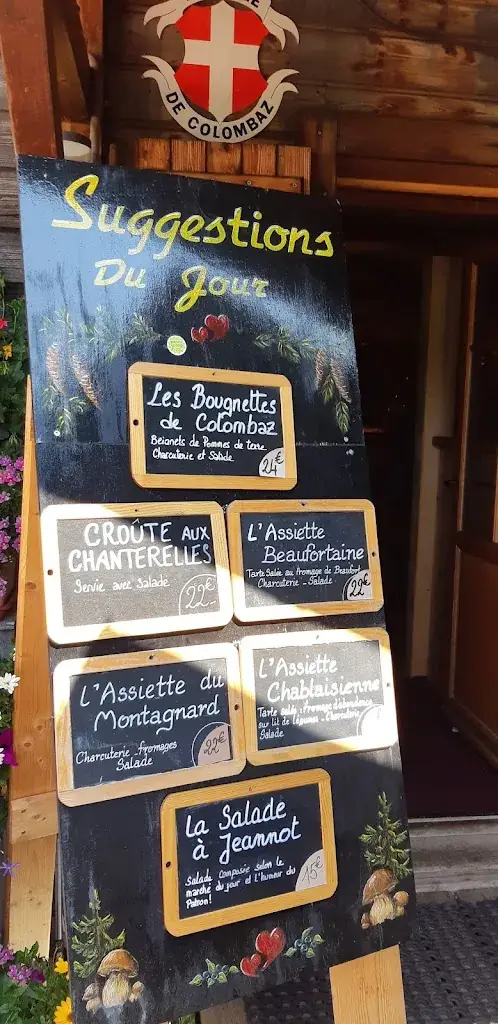 DE COLOMBAZ
Suggestions
Du Jour
Les Bougnettes
de Colombaz
Beignets de Pommes de terre
Charcuterie et Salade
24€
CROÛTE AUX
CHANTERELLES
Servie avec Salade
22€
L'Assiette
Beaufortaine
Tarte Salée au fromage de Beaufort
Charcuterie - Salade
22€
L'Assiette du
Montagnard
Charcuterie - fromages
Salade
22€
L'Assiette
Chablaisienne
Tarte salée fromage d'abondance
sur lit de légumes - Charcuterie
Salade
La Salade
à Jeannot
Salade Composée selon le
marché du jour et l'humeur du
Patron!
15€